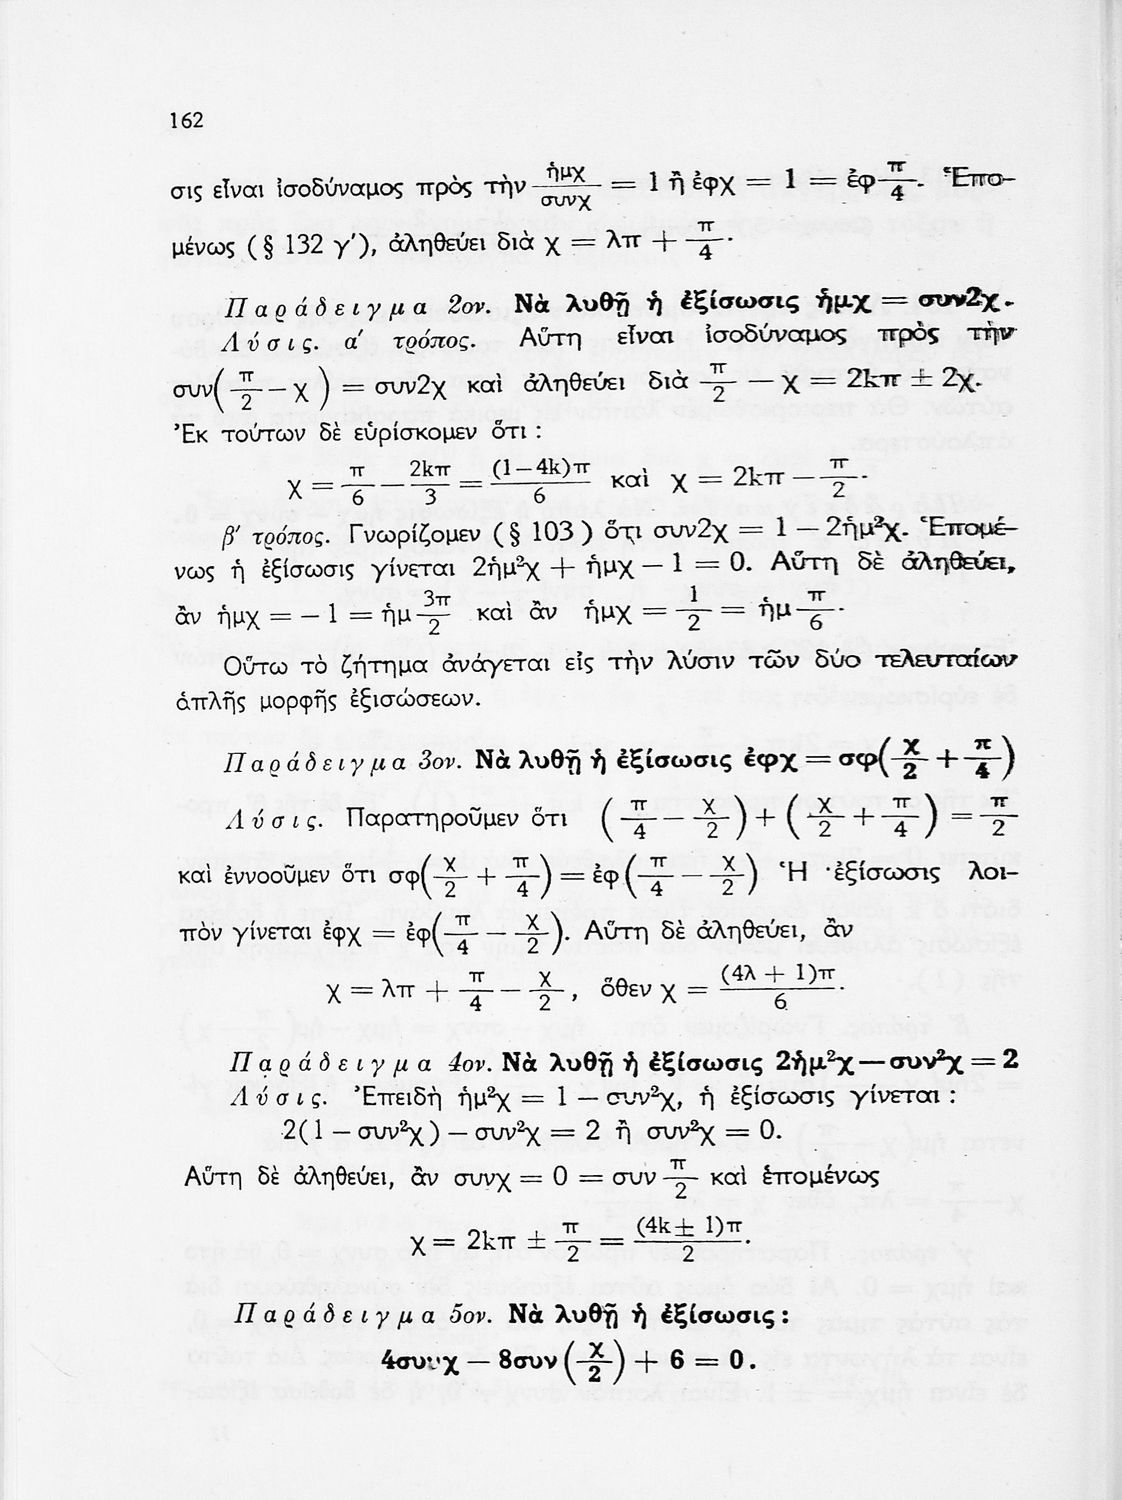 162
σις εἶναι ἰσοδύναμος πρὸς τὴν ἡμχ/συνχ = 1 ἢ ἐφχ = 1 = ἐφ π/4. Ἑπο-
μένως (§ 132 γ'), ἀληθεύει διὰ χ = λπ + π/4.
Παράδειγμα 2ον. Νὰ λυθῇ ἡ ἐξίσωσις ἡμχ = συν2χ.
Λύσις. α' τρόπος. Αὕτη εἶναι ἰσοδύναμος πρὸς τὴν
συν(π/2 — χ) = συν2χ καὶ ἀληθεύει διὰ π/2 — χ = 2kπ ± 2χ.
Ἐκ τούτων δὲ εὑρίσκομεν ὅτι :
χ = π/6 — 2kπ/3 = (1—4k)π/6 καὶ χ = 2kπ — π/2.
β' τρόπος. Γνωρίζομεν (§ 103) ὅτι συν2χ = 1 — 2ἡμ²χ. Ἑπομέ-
νως ἡ ἐξίσωσις γίνεται 2ἡμ²χ + ἡμχ — 1 = 0. Αὕτη δὲ ἀληθεύει,
ἂν ἡμχ = — 1 = ἡμ 3π/2 καὶ ἂν ἡμχ = 1/2 = ἡμ π/6.
Οὕτω τὸ ζήτημα ἀνάγεται εἰς τὴν λύσιν τῶν δύο τελευταίων
ἁπλῆς μορφῆς ἐξισώσεων.
Παράδειγμα 3ον. Νὰ λυθῇ ἡ ἐξίσωσις ἐφχ = σφ(χ/2 + π/4)
Λύσις. Παρατηροῦμεν ὅτι (π/4 — χ/2) + (χ/2 + π/4) = π/2
καὶ ἐννοοῦμεν ὅτι σφ(χ/2 + π/4) = ἐφ(π/4 — χ/2) Ἡ ἐξίσωσις λοι-
πὸν γίνεται ἐφχ = ἐφ(π/4 — χ/2). Αὕτη δὲ ἀληθεύει, ἂν
χ = λπ + π/4 — χ/2, ὅθεν χ = (4λ + 1)π/6.
Παράδειγμα 4ον. Νὰ λυθῇ ἡ ἐξίσωσις 2ἡμ²χ—συν²χ = 2
Λύσις. Ἐπειδὴ ἡμ²χ = 1 — συν²χ, ἡ ἐξίσωσις γίνεται :
2(1 — συν²χ) — συν²χ = 2 ἢ συν²χ = 0.
Αὕτη δὲ ἀληθεύει, ἂν συνχ = 0 = συν π/2 καὶ ἑπομένως
χ = 2kπ ± π/2 = (4k ± 1)π/2.
Παράδειγμα 5ον. Νὰ λυθῇ ἡ ἐξίσωσις:
4συνχ — 8συν(χ/2) + 6 = 0.